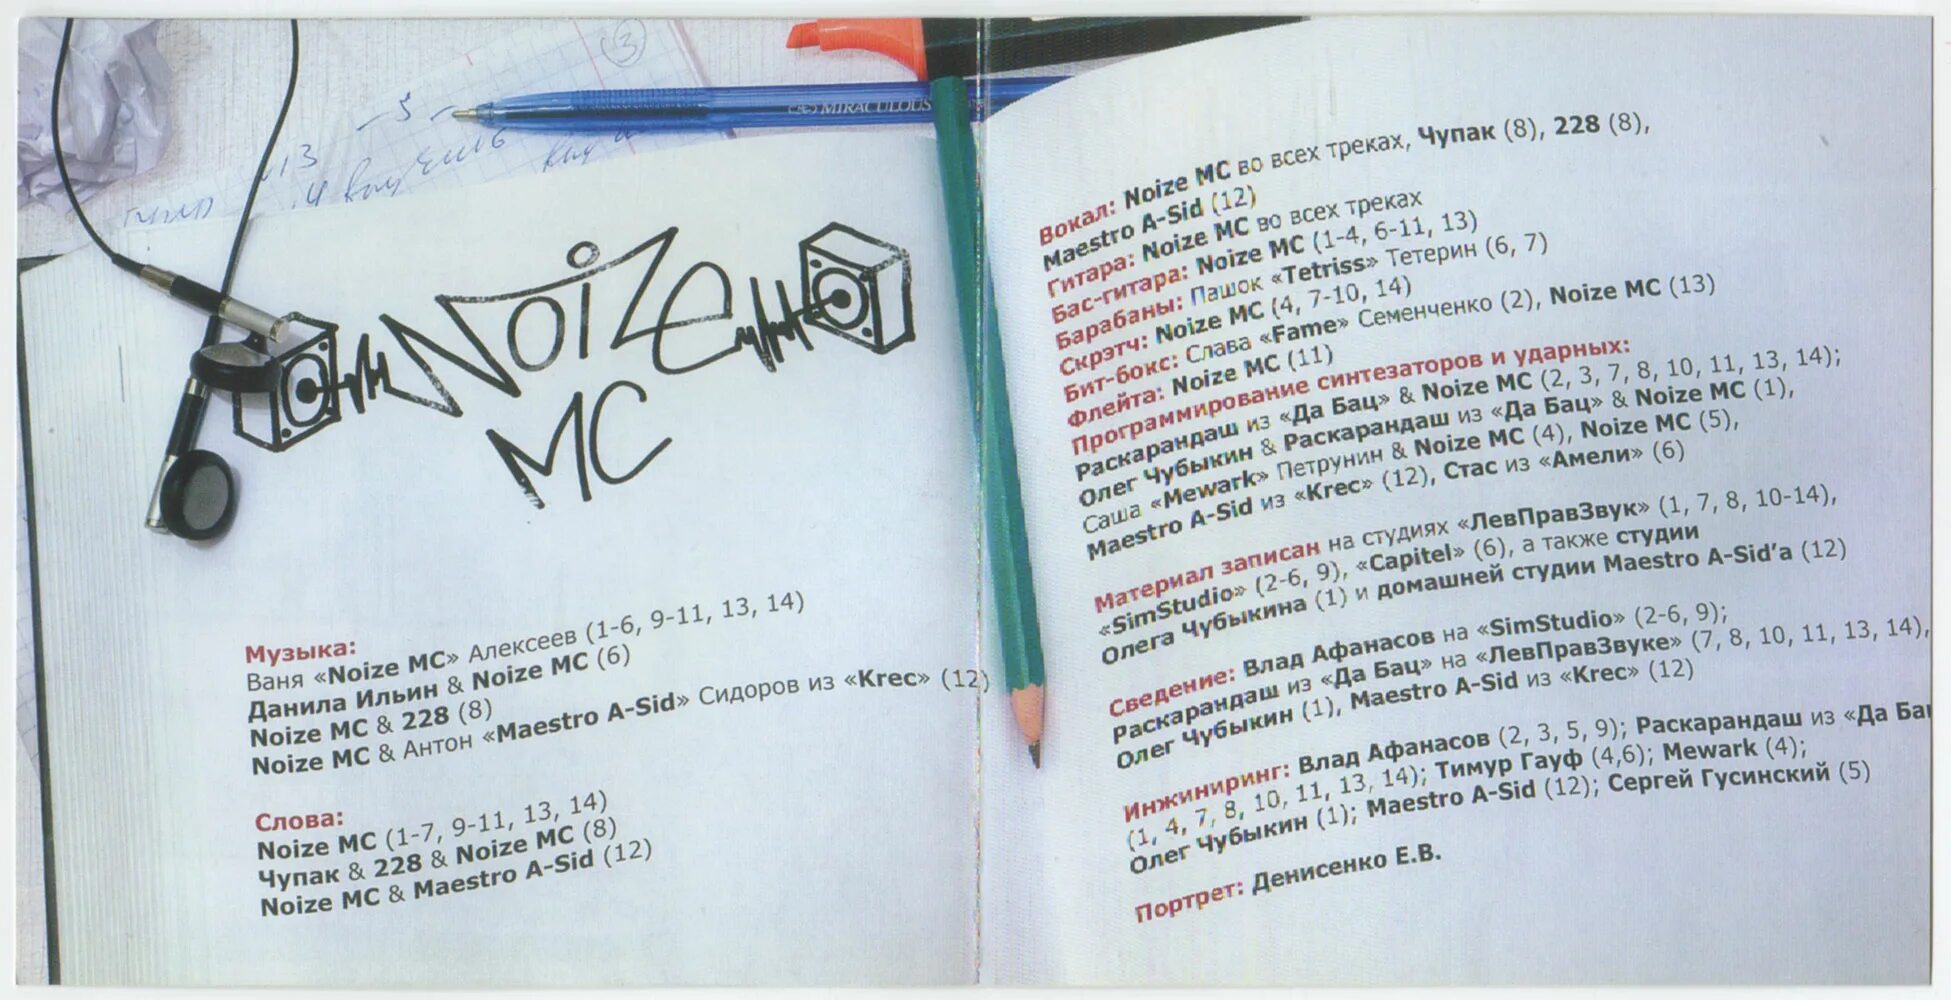 3
5
13
MIRACULOUS
NOIZE
MC
Музыка:
Ваня «Noize MC» Алексеев (1-6, 9-11, 13, 14)
Данила Ильин & Noize MC (6)
Noize MC & 228 (8)
Noize MC & Антон «Maestro A-Sid» Сидоров из «Krec» (12)
Слова:
Noize MC (1-7, 9-11, 13, 14)
Чупак & 228 & Noize MC (8)
Noize MC & Maestro A-Sid (12)
Вокал: Noize MC во всех треках, Чупак (8), 228 (8),
Maestro A-Sid (12)
Гитара: Noize MC во всех треках
Бас-гитара: Noize MC (1-4, 6-11, 13)
Барабаны: Пашок «Tetriss» Тетерин (6, 7)
Скрэтч: Noize MC (4, 7-10, 14)
Бит-бокс: Слава «Fame» Семенченко (2), Noize MC (13)
Флейта: Noize MC (11)
Программирование синтезаторов и ударных:
Раскарандаш из «Да Бац» & Noize MC (2, 3, 7, 8, 10, 11, 13, 14);
Олег Чубыкин & Раскарандаш из «Да Бац» & Noize MC (1),
Саша «Mewark» Петрунин & Noize MC (4), Noize MC (5),
Maestro A-Sid из «Krec» (12), Стас из «Амели» (6)
Материал записан на студиях «ЛевПравЗвук» (1, 7, 8, 10-14),
«SimStudio» (2-6, 9), «Capitel» (6), а также студии
Олега Чубыкина (1) и домашней студии Maestro A-Sid’a (12)
Сведение: Влад Афанасов на «SimStudio» (2-6, 9);
Раскарандаш из «Да Бац» на «ЛевПравЗвуке» (7, 8, 10, 11, 13, 14),
Олег Чубыкин (1), Maestro A-Sid из «Krec» (12)
Инжиниринг: Влад Афанасов (2, 3, 5, 9); Раскарандаш из «Да Ба
(1, 4, 7, 8, 10, 11, 13, 14); Тимур Гауф (4,6); Mewark (4);
Олег Чубыкин (1); Maestro A-Sid (12); Сергей Гусинский (5)
Портрет: Денисенко Е.В.